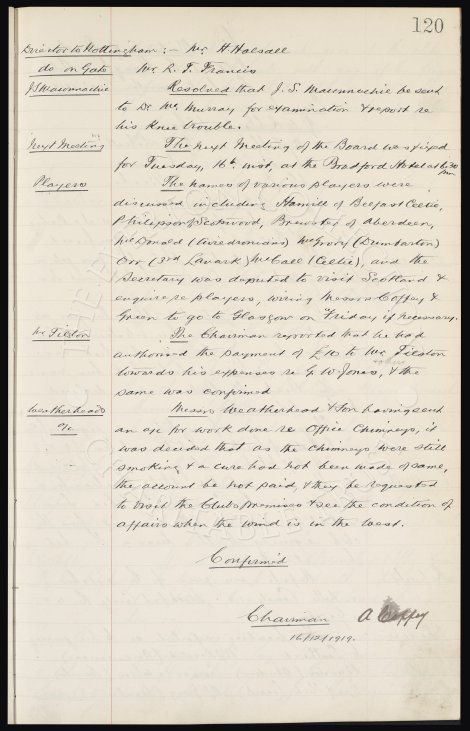 120
Director to Nottingham :- Mr. H. Halsall
do on Gate Mr R. T. Francis
J.S Maconnachie Resolved that J. S. Maconnachie be sent
to Dr McMurray for examination & report re
his knee trouble.
Next Meeting The next Meeting of the Board was fixed
for Tuesday, 16th inst, at the Bradford Hotel at 6.30 pm
Players The names of various players were
discussed including Hamill of Belfast Celtic,
Philipson of Scotswood, Brewster of Aberdeen,
McDonald (Airedronians) McGrory (Dumbarton)
Orr (3rd Lanark) McCall (Celtic), and the
Secretary was deputed to visit Scotland &
enquire re players, wiring Messrs Coffey &
Green to go to Glasgow on Friday if necessary.
Mr Tilston The Chairman reported that he had
authorised the payment of £10 to Mr Tilston
towards his expenses re G. W Jones, & the
same was confirmed
Weatherheads Messrs Weatherhead & Son having sent
a/c an a/c for work done re Office Chimneys, it
was decided that as the chimneys were still
smoking & a cure had not been made of same,
the account be not paid, & they be requested
to visit the Clubs premises & see the condition of
affairs when the wind is in the West.
Confirmed
Chairman A Coffey
16/12/1919.